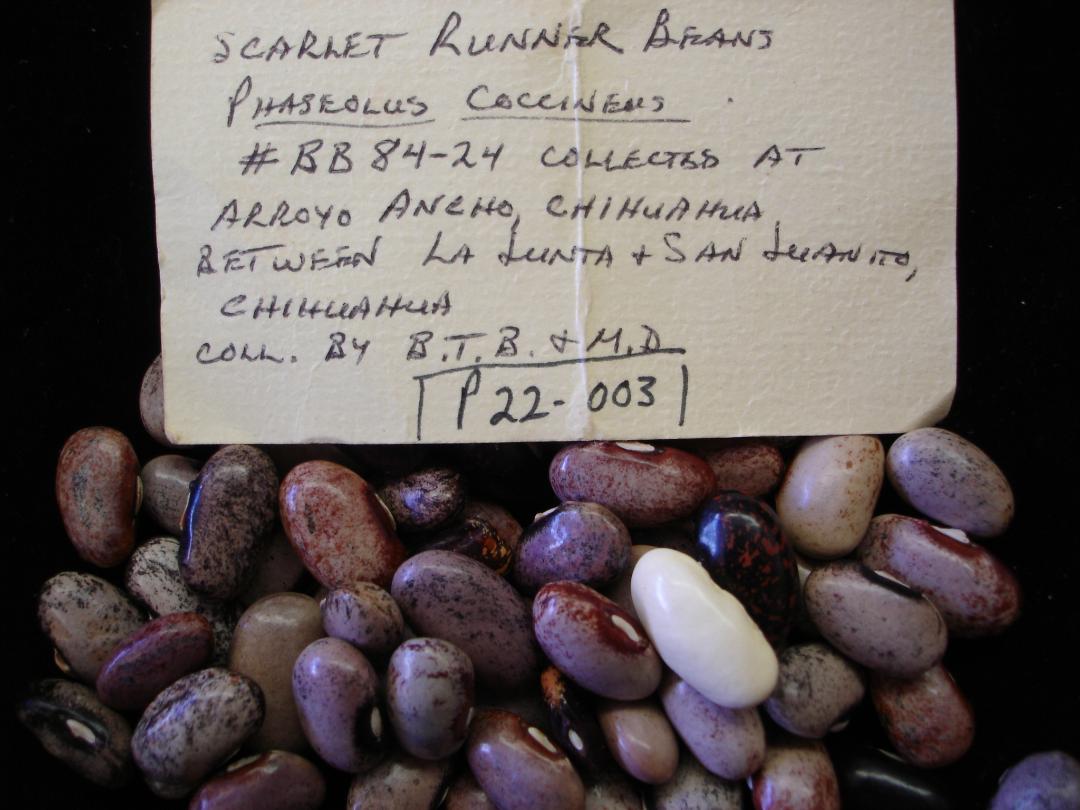 SCARLET RUNNER BEANS
PHASEOLUS COCCINEUS
#BB 84-24 COLLECTED AT
ARROYO ANCHO, CHIHUAHUA
BETWEEN LA JUNTA + SAN JUANITO,
CHIHUAHUA
COLL. BY B.T.B. + M.D
P22-003